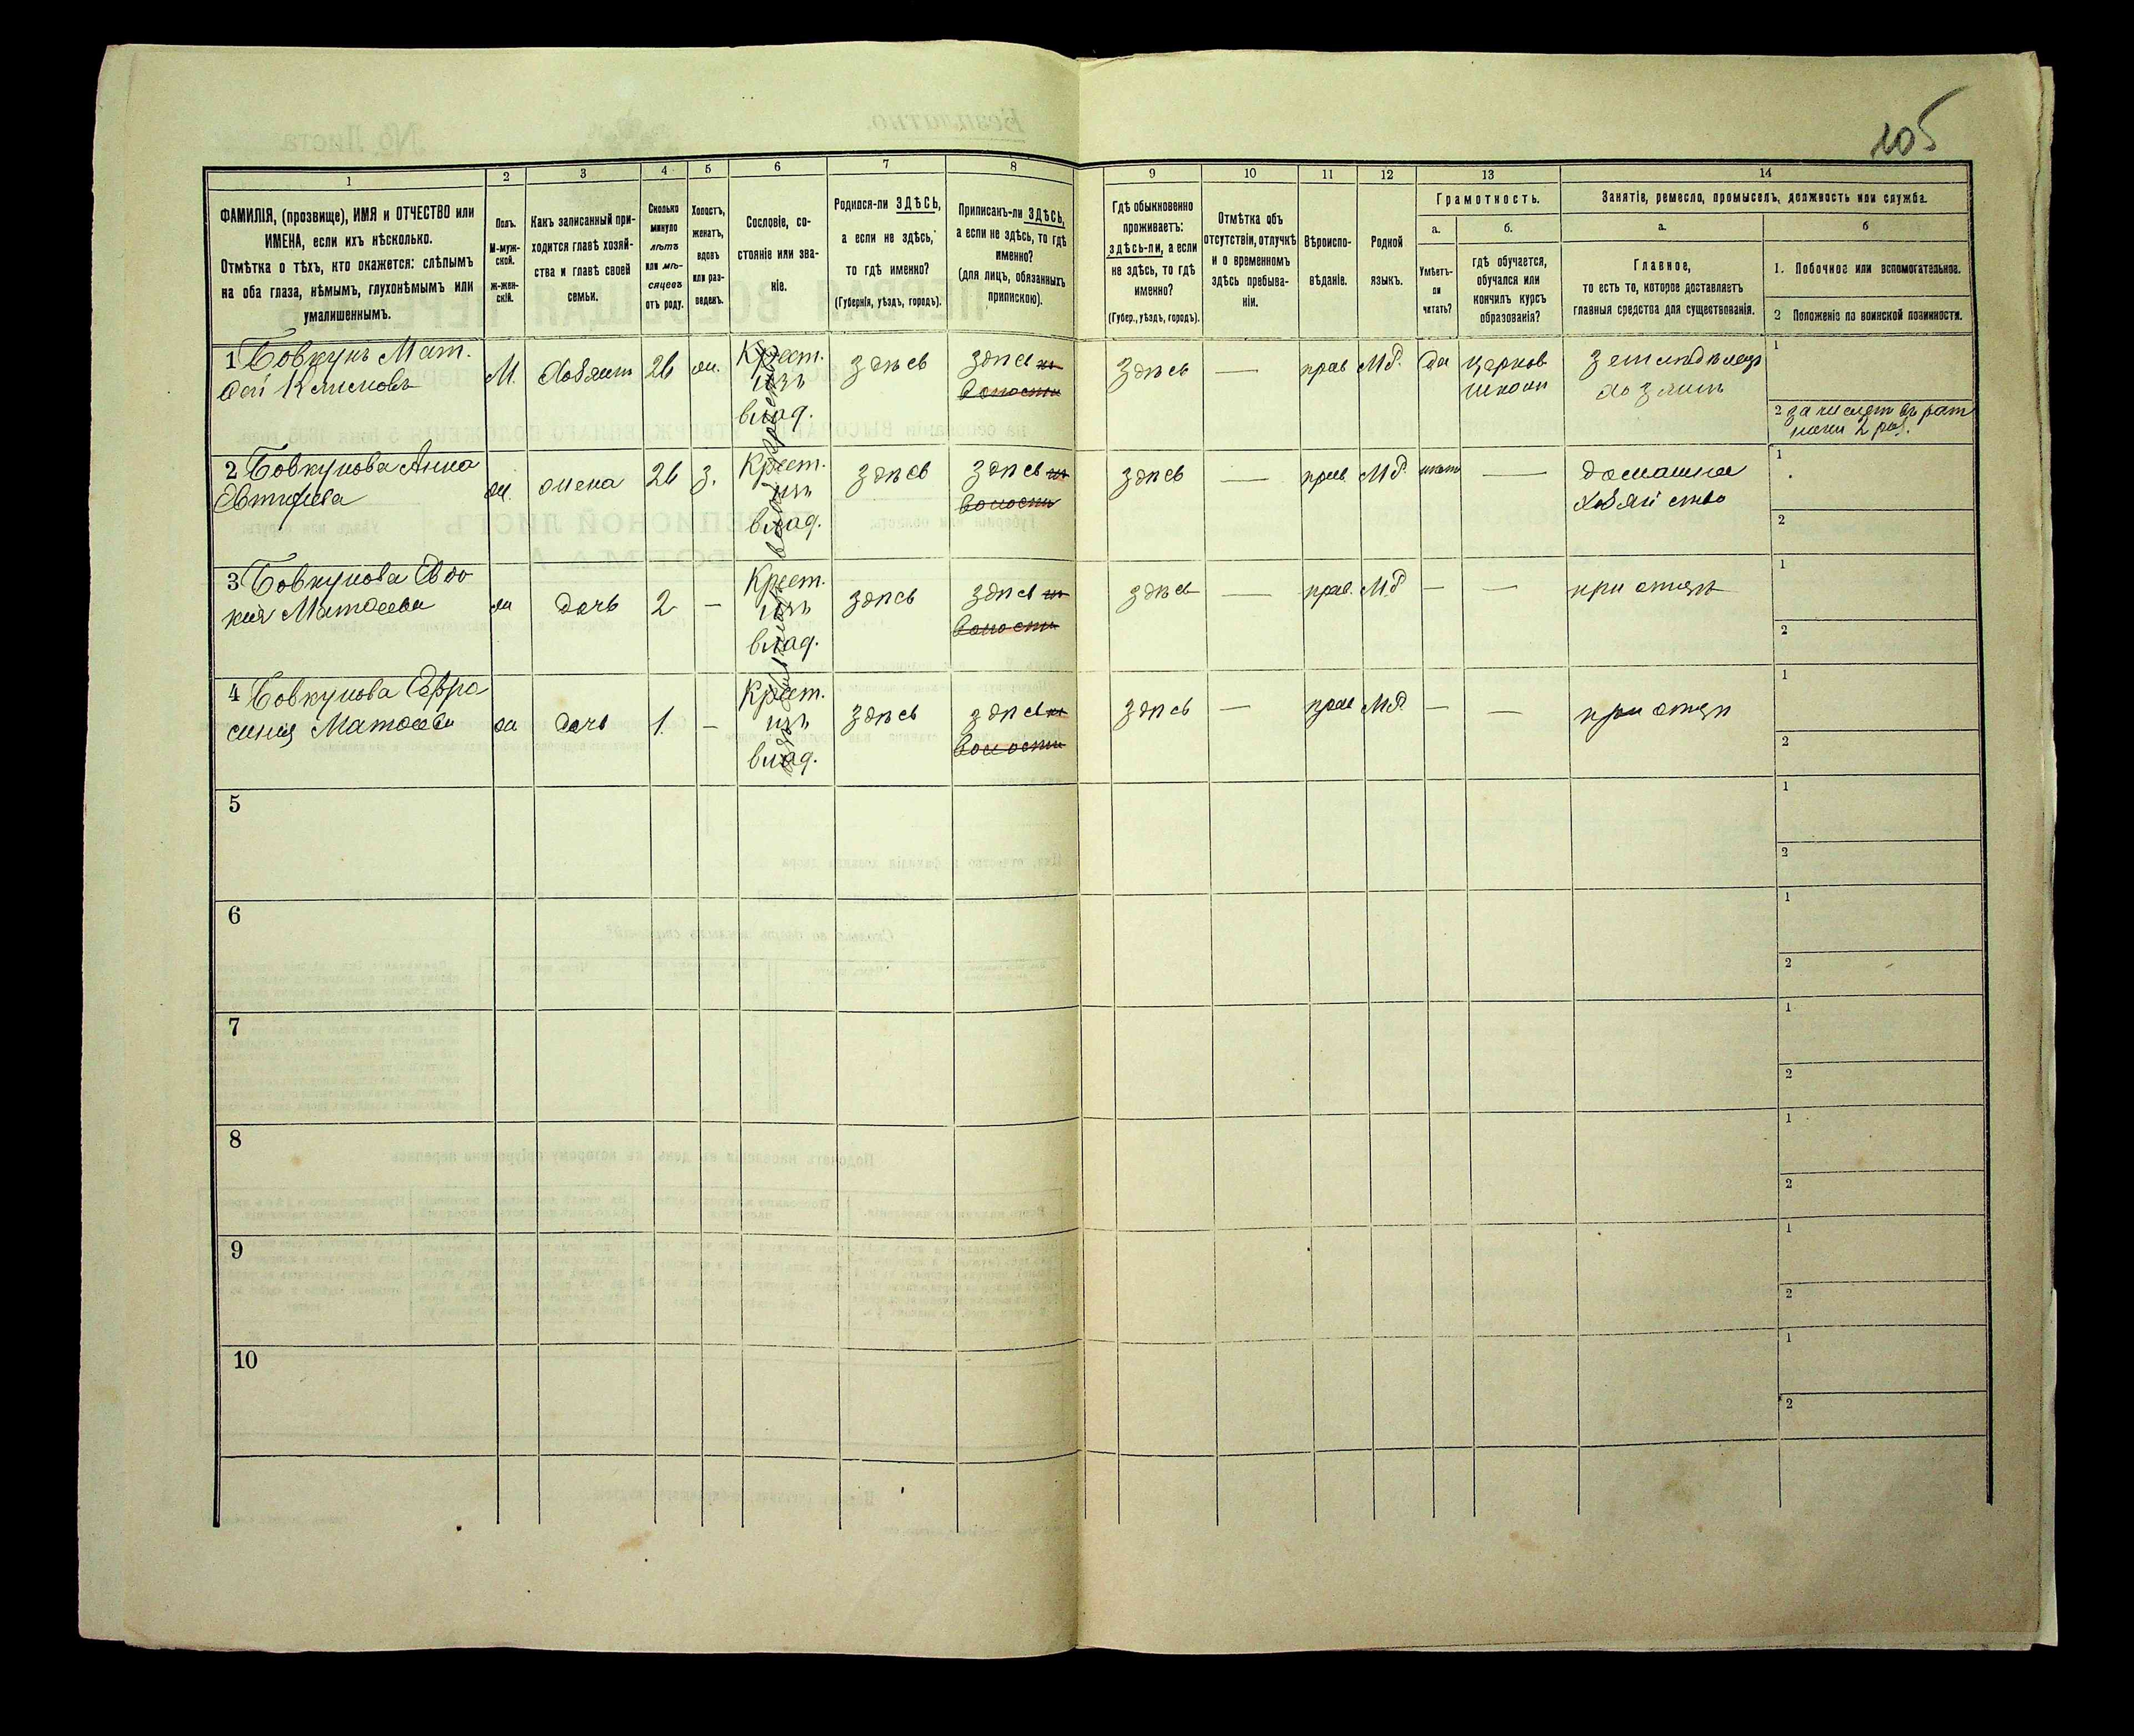 105
1 2 3 4 5 6 7 8 9 10 11 12 13 14
ФАМИЛІЯ, (прозвище), ИМЯ и ОТЧЕСТВО или
ИМЕНА, если ихъ нѣсколько.
Отмѣтка о тѣхъ, кто окажется: слѣпымъ
на оба глаза, нѣмымъ, глухонѣмымъ или
умалишеннымъ.
Полъ.
М-муж-
ской.
ж-жен-
скій.
Какъ записанный при-
ходится главѣ хозяй-
ства и главѣ своей
семьи.
Сколько
минуло
лѣтъ
или мѣ-
сяцевъ
отъ роду.
Холостъ,
женатъ,
вдовъ
или раз-
веденъ.
Сословіе, со-
стояніе или зва-
ніе.
Родился-ли ЗДѢСЬ,
а если не здѣсь,
то гдѣ именно?
(Губернія, уѣздъ, городъ).
Приписанъ-ли ЗДѢСЬ,
а если не здѣсь, то гдѣ
именно?
(для лицъ, обязанныхъ
припискою).
Гдѣ обыкновенно
проживаетъ:
здѣсь-ли, а если
не здѣсь, то гдѣ
именно?
(Губер., уѣздъ, городъ).
Отмѣтка объ
отсутствіи, отлучкѣ
и о временномъ
здѣсь пребыва-
ніи.
Вѣроиспо-
вѣданіе.
Родной
языкъ.
Грамотность.
а.
Умѣетъ-
ли
читать?
б.
гдѣ обучается,
обучался или
кончилъ курсъ
образованія?
Занятіе, ремесло, промыселъ, должность или служба.
а.
Главное,
то есть то, которое доставляетъ
главныя средства для существованія.
б
1. Побочное или вспомогательное.
2 Положеніе по воинской повинности.
1 Бовкунъ Мат.
фей Климовъ
М. Хозяин 26 ж. Крест.
изъ
влад.
здѣсь здѣсь
волости
здѣсь — прав М.Р. да церков
школи
земледѣлец
хозяин
1
2 зачислен въ рат
ники 2 раз.
2 Бовкунова Анна
Евтифиева
ж. жена 26 з. Крест.
изъ
влад.
здѣсь здѣсь
волости
здѣсь — прав М.Р. нѣт — домашнее
хозяйство
1
2
3 Бовкунова Евдо
кия Матфеева
ж дочь 2 — Крест.
изъ
влад.
здѣсь здѣсь
волости
здѣсь — прав. М.Р — — при отцѣ
1
2
4 Бовкунова Евфро
синия Матфеева
ж дочь 1. — Крест.
изъ
влад.
здѣсь здѣсь
волости
здѣсь — прав М.Р. — — при отцѣ
1
2
5
1
2
6
1
2
7
1
2
8
1
2
9
1
2
10
1
2